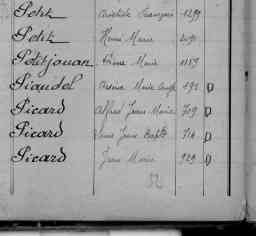 Petit Aristide François 1299
Petit Henri Marie
Petitjouan Pierre Marie 1159
Piaudel Marie 192 D
Picard Alfred Jean Marie 709 D
Picard Jean Bapte 714 D
Picard Jean Marie 929 D